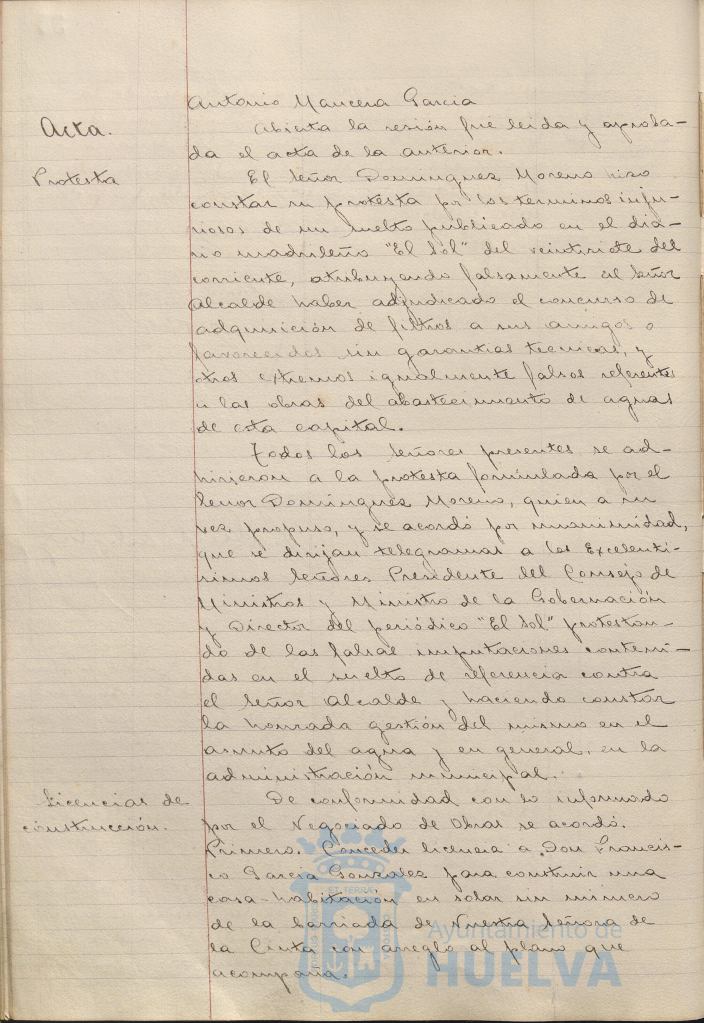 Antonio Mancera Garcia
Acta.
Abierta la sesión fue leida y aproba-
da el acta de la anterior.
Protesta
El Señor Dominguez Moreno hizo
constar su protesta por los terminos inju-
riosos de un suelto publicado en el dia-
rio madrileño "El Sol" del veintisiete del
corriente, atribuyendo falsamente al Señor
Alcalde haber adjudicado el concurso de
adquisición de filtros a sus amigos o
favorecidos sin garantias tecnicas, y
otros extremos igualmente falsos referentes
a las obras del abastecimiento de aguas
de esta capital.
Todos los Señores presentes se ad-
hirieron a la protesta formulada por el
Señor Dominguez Moreno, quien a su
vez propuso, y se acordó por unanimidad,
que se dirijan telegramas a los Excelentí-
simos Señores Presidente del Consejo de
Ministros y Ministro de la Gobernación
y Director del periódico "El Sol" protestan-
do de las falsas imputaciones conteni-
das en el suelto de referencia contra
el Señor Alcalde y haciendo constar
la honrada gestión del mismo en el
asunto del agua y en general, en la
administración municipal.
Licencias de
construcción.
De conformidad con lo informado
por el Negociado de Obras se acordó.
Primero. Conceder licencia a Don Francis-
co Garcia Gonzalez para construir una
casa-habitación en solar sin número
de la barriada de Nuestra Señora de
la Cinta con arreglo al plano que
acompaña.
Ayuntamiento de
HUELVA